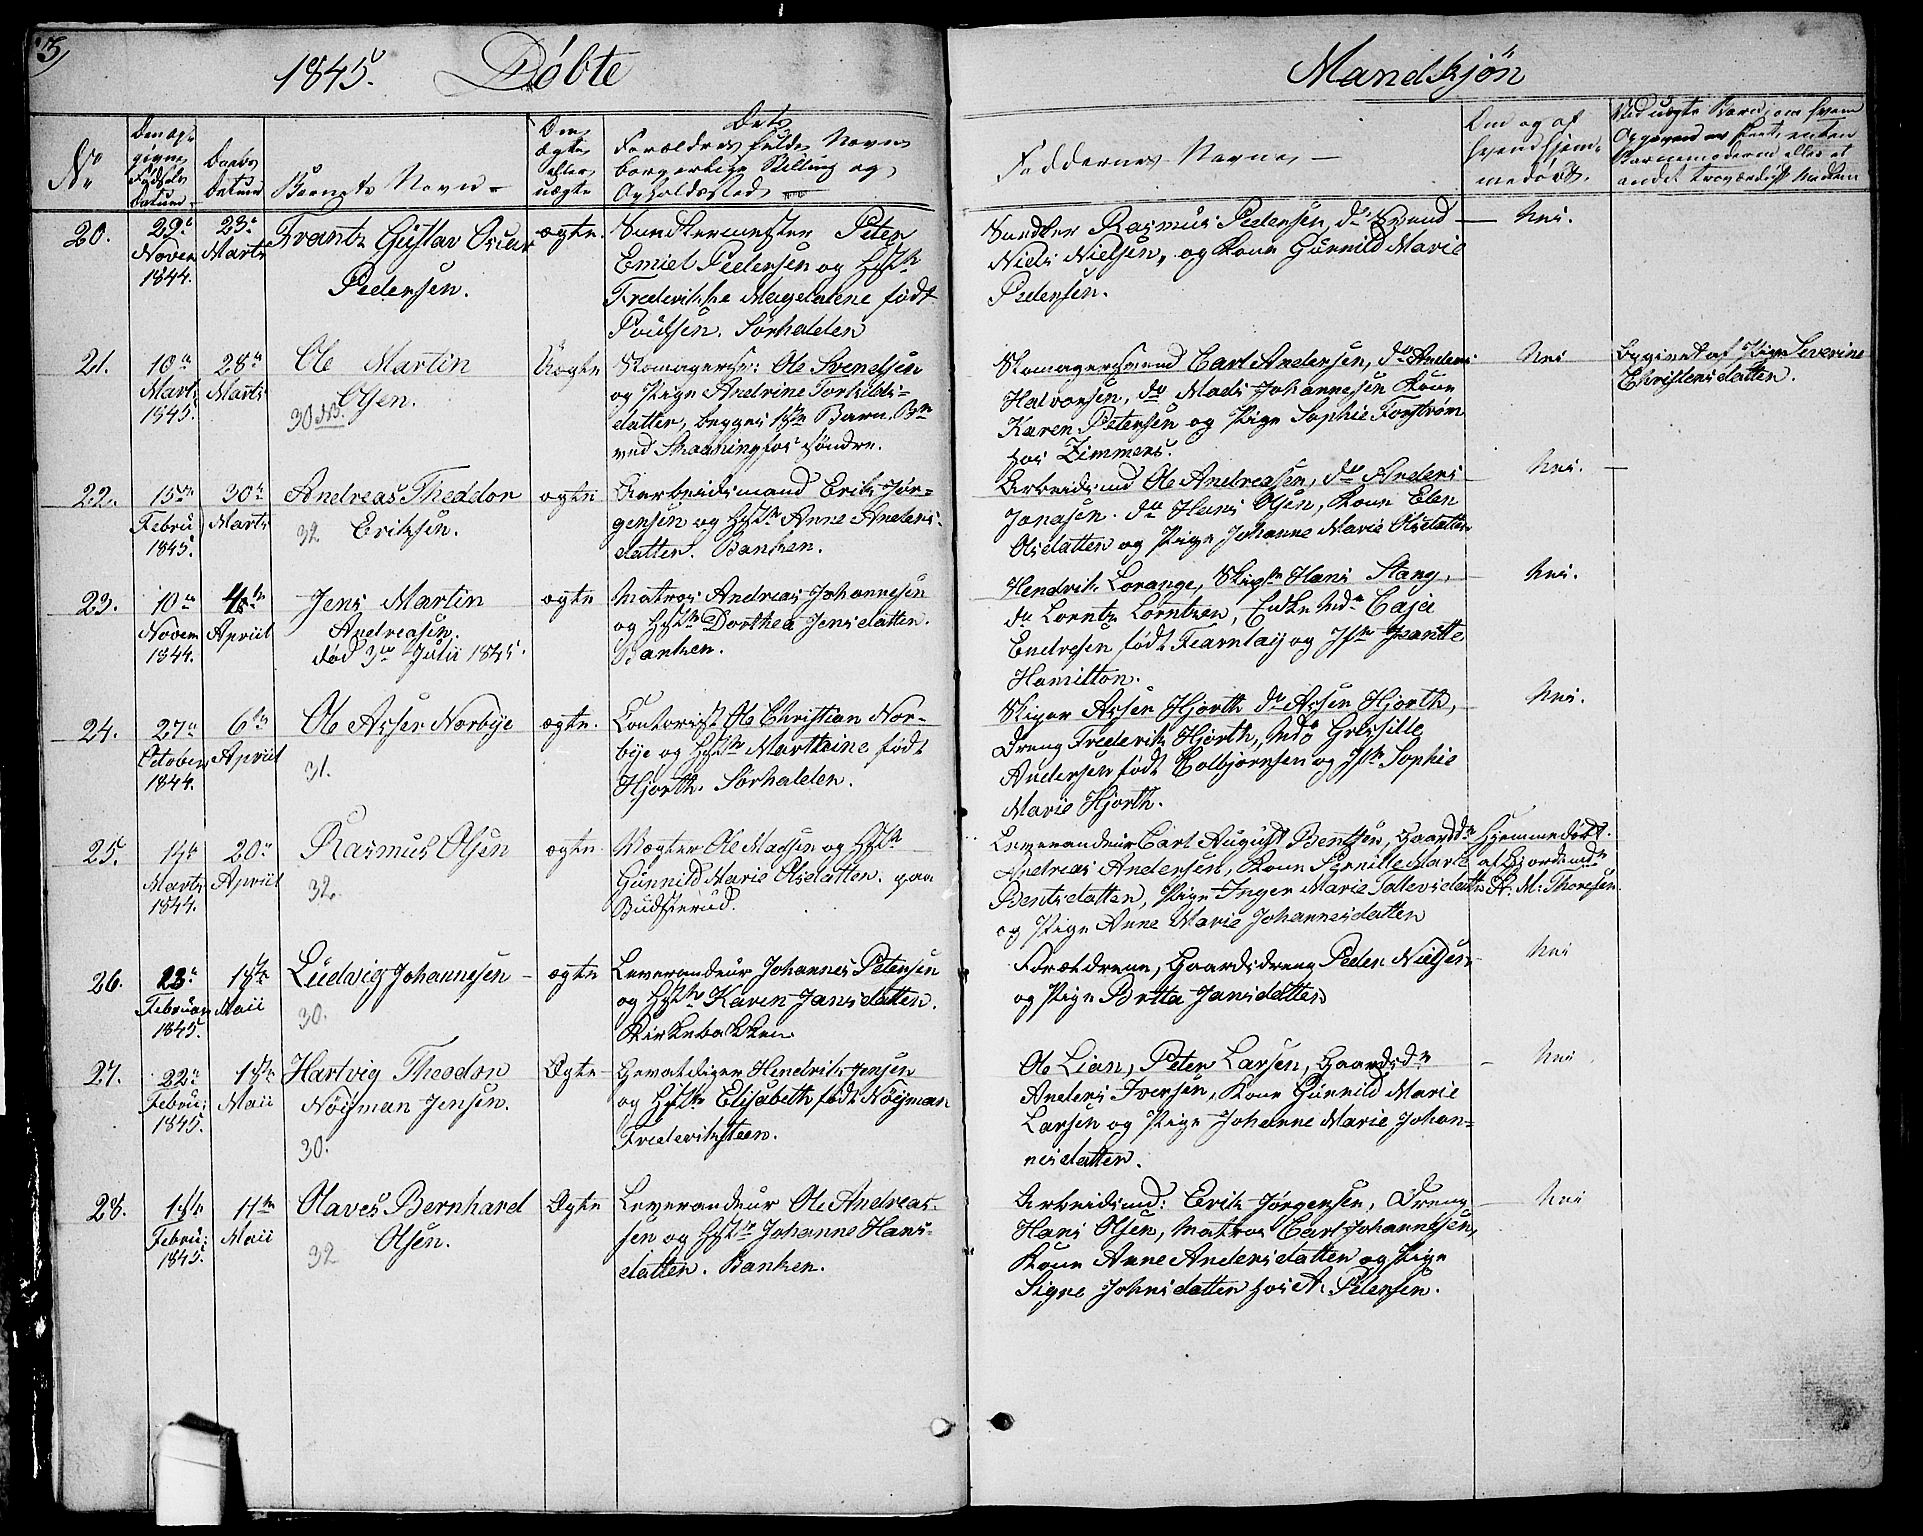 3
1845. Döbte
Mandkjön
No
Den op-
givne
Fødsels
Datum
Daabs
Datum
Barnets Navn
Om
ægte
eller
uægte
Dets
Forældres fulde Navn
borgerlige Stilling og
Opholdssted
Faddernes Navne
Om og af
hvem hjem-
medøbt.
Ved uægte Barn, om hvem
Opgivend er skeet, enten
Barnemoderen eller et
andet troværdigt Medlem
20.
29de
Novem
1844.
23de
Marts
Frantz Gustav Oscar
Pedersen.
ægte.
Peter
Emiel Pedersen og Hstr
Frederikke Magdalene født
Poulsen. Sørhalden
Rasmus Pedersen, do Svend
Niels Nielsen, og Kone Gunnild Marie
Pedersen.
Nei.
21.
10de
Marts
1845.
28de
Marts
Ole Martin
Olsen.
30
Uægte
Skomagersv: Ole Svendsen
og Pige Andrine Torkilds-
datter, begges 1ste Barn. Bn
ved Skaaningfos söndre.
Skomagersvend Carl Andersen, do Anders
Halvorsen, do Mads Johannesen Kone
Karen Petersen og Pige Sophie Forström
hos Zimmers.
Nei
Opgivet af Pige Severine
Christensdatter.
22.
15de
Febru
1845.
30de
Marts
Andreas Theodor
Eriksen.
32
ægte
Arbeidsmand Erik Jør-
gensen og Hstr Anne Anders-
datter. Banken.
Arbeidsmd Ole Andreasen, do Anders
Jonasen. do Hans Olsen, Kone Elen
Olsdatter og Pige Johanne Marie Olsdatter
Nei.
23.
10de
Novem
1844.
4de
Apriil
Jens Martin
Andreasen.
død 3die Julii 1845.
ægte
Matros Andreas Johannesen
og Hstr Dorthea Jensdatter.
Banken.
Hendrik Lorange, Skipr Hans Stang,
do Lorntz Lorntzen, Enke Md Caja
Endresen født Fearnlay og Jfr Jeanette
Hamilton.
Nei.
24.
27de
October
1844.
6te
Apriil
Ole Asser Norbye
31.
ægte.
Contorist Ole Christian Nor-
bye og Hstr Marthine født
Hjorth. Sörhalden.
Skiper Assen Hjorth do Assen Hjorth,
Dreng Frederik Hjorth, Md
Andersen født Colbjørnsen og Jfr Sophie
Marie Hjorth.
Nei.
25.
Marts
1844.
20de
Apriil
Rasmus Olsen
32.
ægte
Vægter Ole Madsen og Hstr
Gunnild Marie Olsdatter. paa
Budsterud.
Leverandeur Carl August Bentzen, Gaardd
Andreas Andersen, Kone Pernille Marie
Bentsdatter, Pige Inger Marie Tollevsdatter
og Pige Anne Marie Johannesdatter
Hjemmedøbt
af Gjordemdr
M. Thoresen.
26.
23de
Februar
1845.
1ste
Maii
Ludvig Johannesen
30.
ægte
Leverandeur Johannes Petersen
og Hstr Karen Jansdatter.
Kirkebakken
Forældrene, Gaardsdreng Peder Nielsen
og Pige Britta Jansdatter
Nei
27.
22de
Febru:
1845.
1ste
Maii
Hartvig Theodor
Nöisman Jensen.
30.
Ægte
Gevaldiger Hendrik Jensen
og Hstr Elisabeth født Nöisman
Frederiksteen.
Ole Lian, Peter Larsen, Gaardsdr
Anders Iversen, Kone Gunnild Marie
Larsen og Pige Johanne Marie Johan-
nesdatter.
Nei
28.
1ste
Febru:
1845.
11te
Maii
Olaves Bernhard
Olsen.
32
Ægte
Leverandeur Ole Andreas-
sen og Hstr Johanne Hans-
datter. Banken.
Arbeidsmd: Erik Jørgensen, Dreng
Hans Olsen, Matros Carl Johannesen,
Kone Anne Andersdatter og Pige
Signe Johnsdatter hos A: Petersen.
Nei